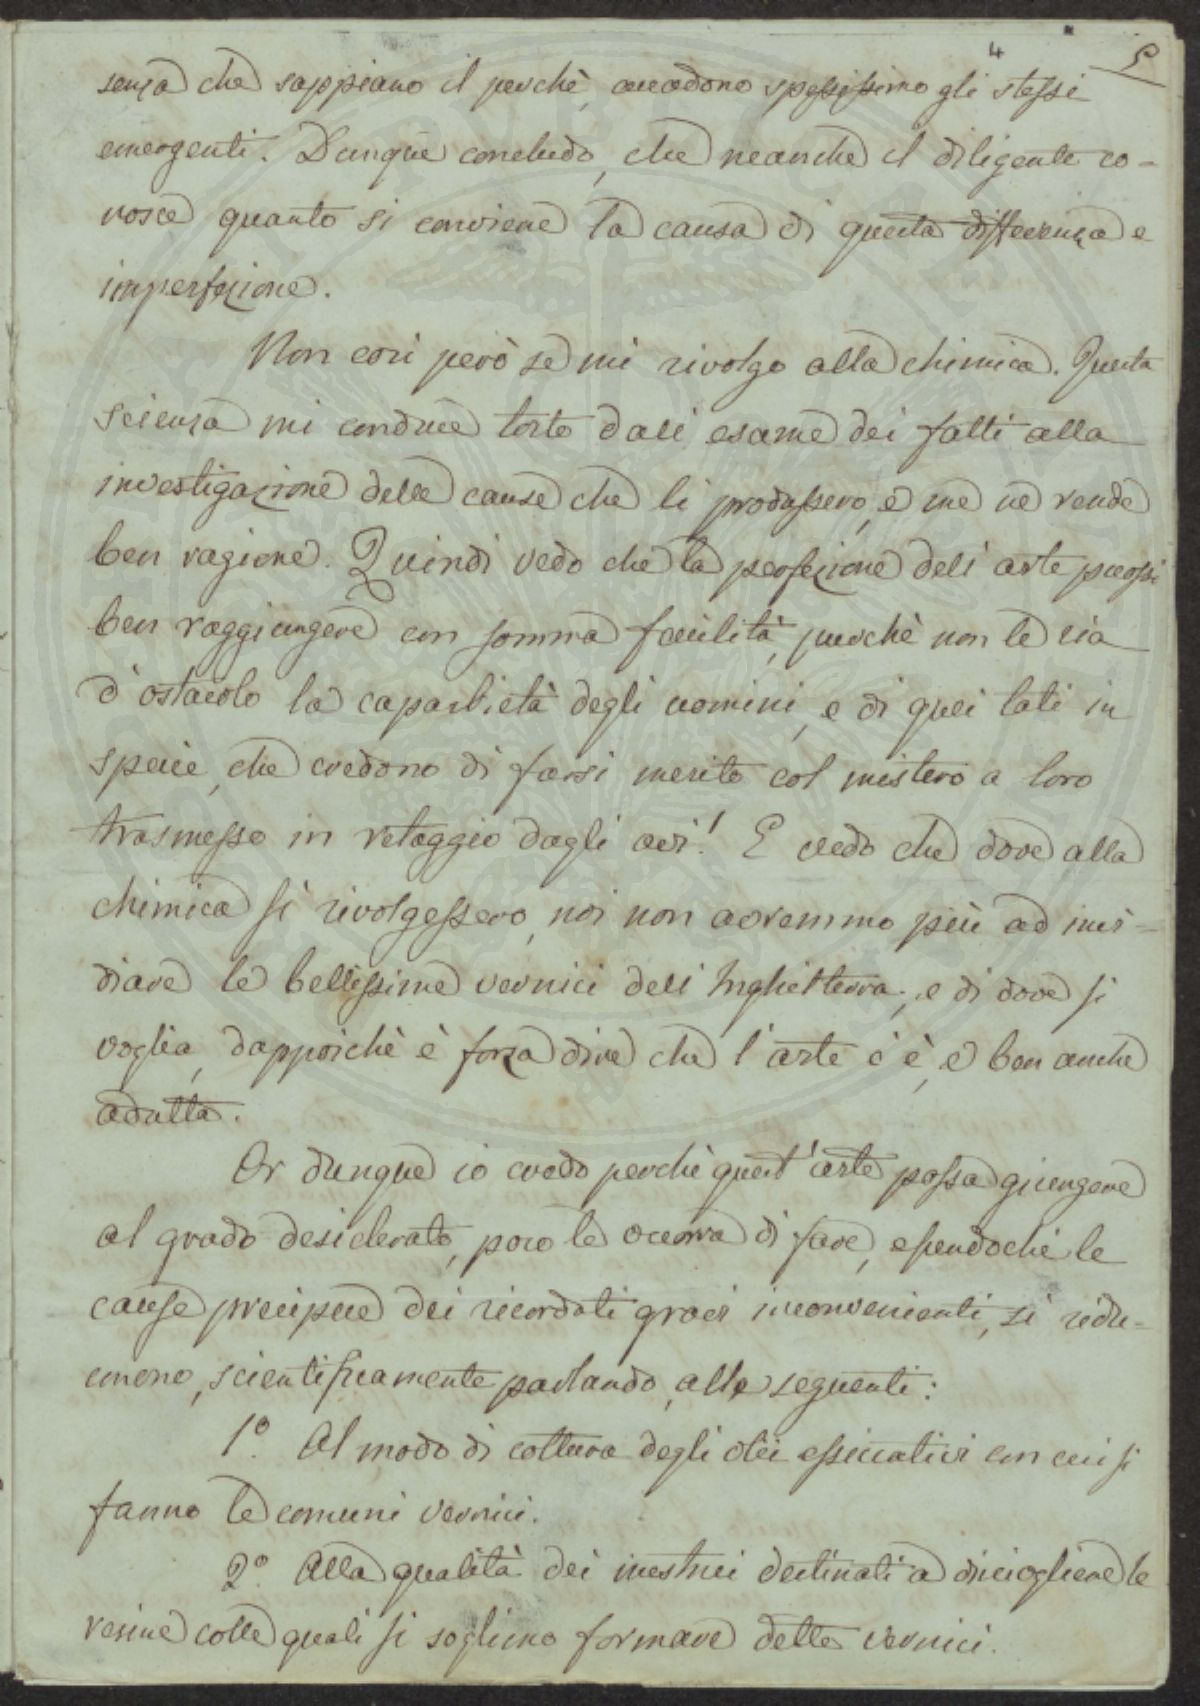 4 5
senza che sappiano il perchè, accadono spessissimo gli stessi
emergenti. Dunque concludo, che neanche il diligente co-
nosce quanto si conviene la causa di questa differenza e
imperfezione.
Non così però se mi rivolgo alla chimica. Questa
scienza mi conduce tosto dall'esame dei fatti alla
investigazione delle cause che li produssero, e me ne rende
ben ragione. Quindi vedo che la perfezione dell'arte puossi
ben raggiungere con somma facilità, purchè non le sia
d'ostacolo la caparbietà degli uomini, e di quei tali in
specie, che credono di farsi merito col mistero a loro
trasmesso in retaggio dagli avi! E vedo che dove alla
chimica si rivolgessero, noi non avremmo più ad invi-
diare le bellissime vernici dell'Inghilterra, e di dove si
voglia, dappoichè è forza dire che l'arte c'è, e ben anche
adulta.
Or dunque io credo perchè quest'arte possa giungere
al grado desiderato, poco le occorra di fare, essendochè le
cause precipue dei ricordati gravi inconvenienti, si redu-
cono, scientificamente parlando, alle seguenti:
1º. Al modo di cottura degli olei essiccativi con cui si
fanno le comuni vernici.
2º. Alla qualità dei mestrui destinati a disciogliere le
resine colle quali si sogliono formare delle vernici.